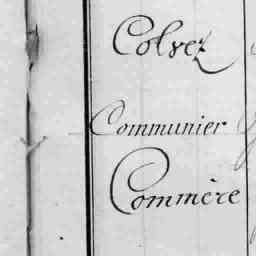 Colvez
Communier
Commère